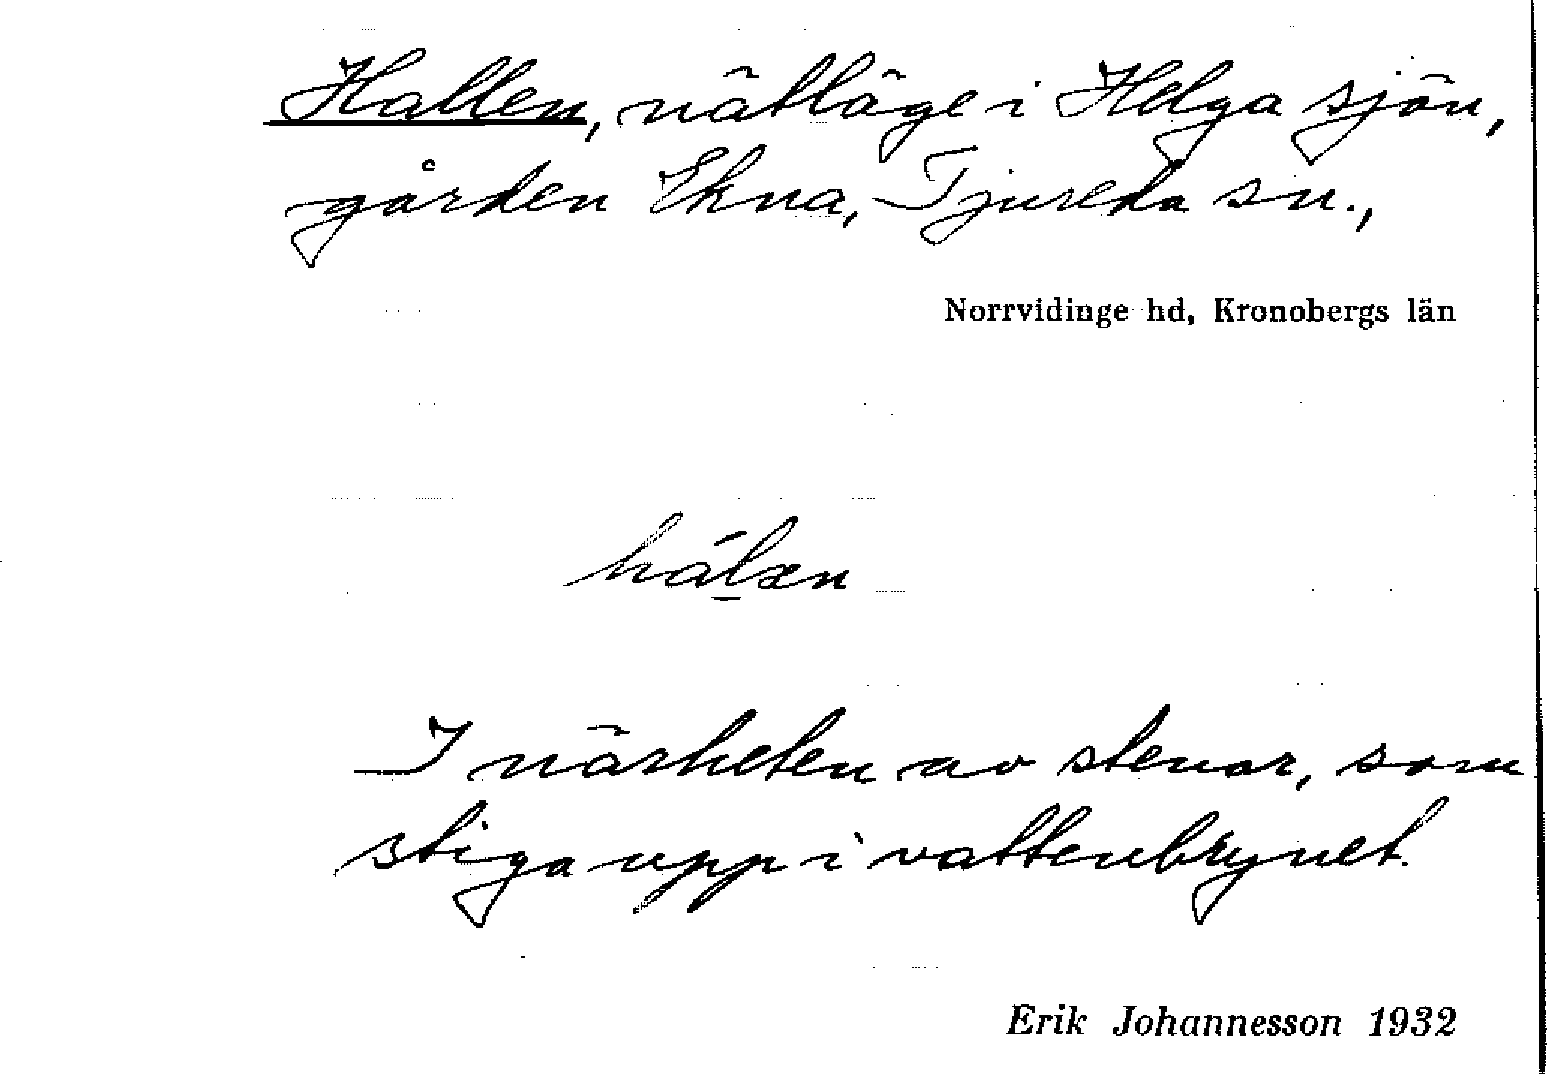 Hallen, nätläge i Helga sjön,
gården Ekna, Tjureda sn.,
Norrvidinge hd, Kronobergs län
hálæn
I närheten av stenar, som
stiga upp i vattenbrynet.
Erik Johannesson 1932